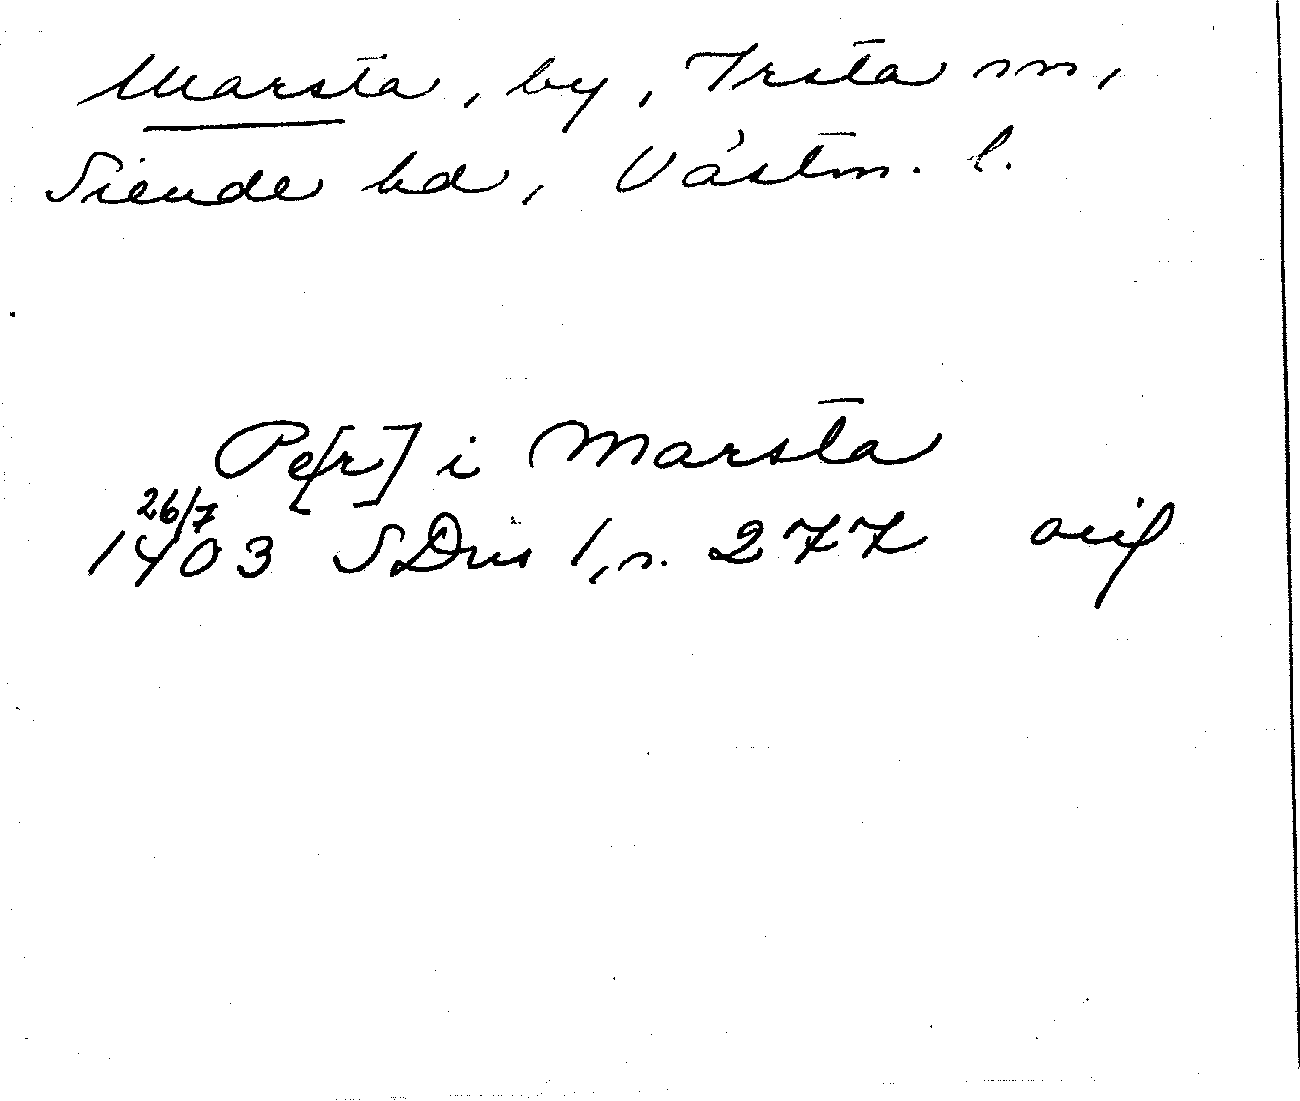 Marsta, by, Irsta sn,
Siende hd, Västm. l.
Pe[r] i Marsta
26/7
1403 SDns 1, n. 277 avs